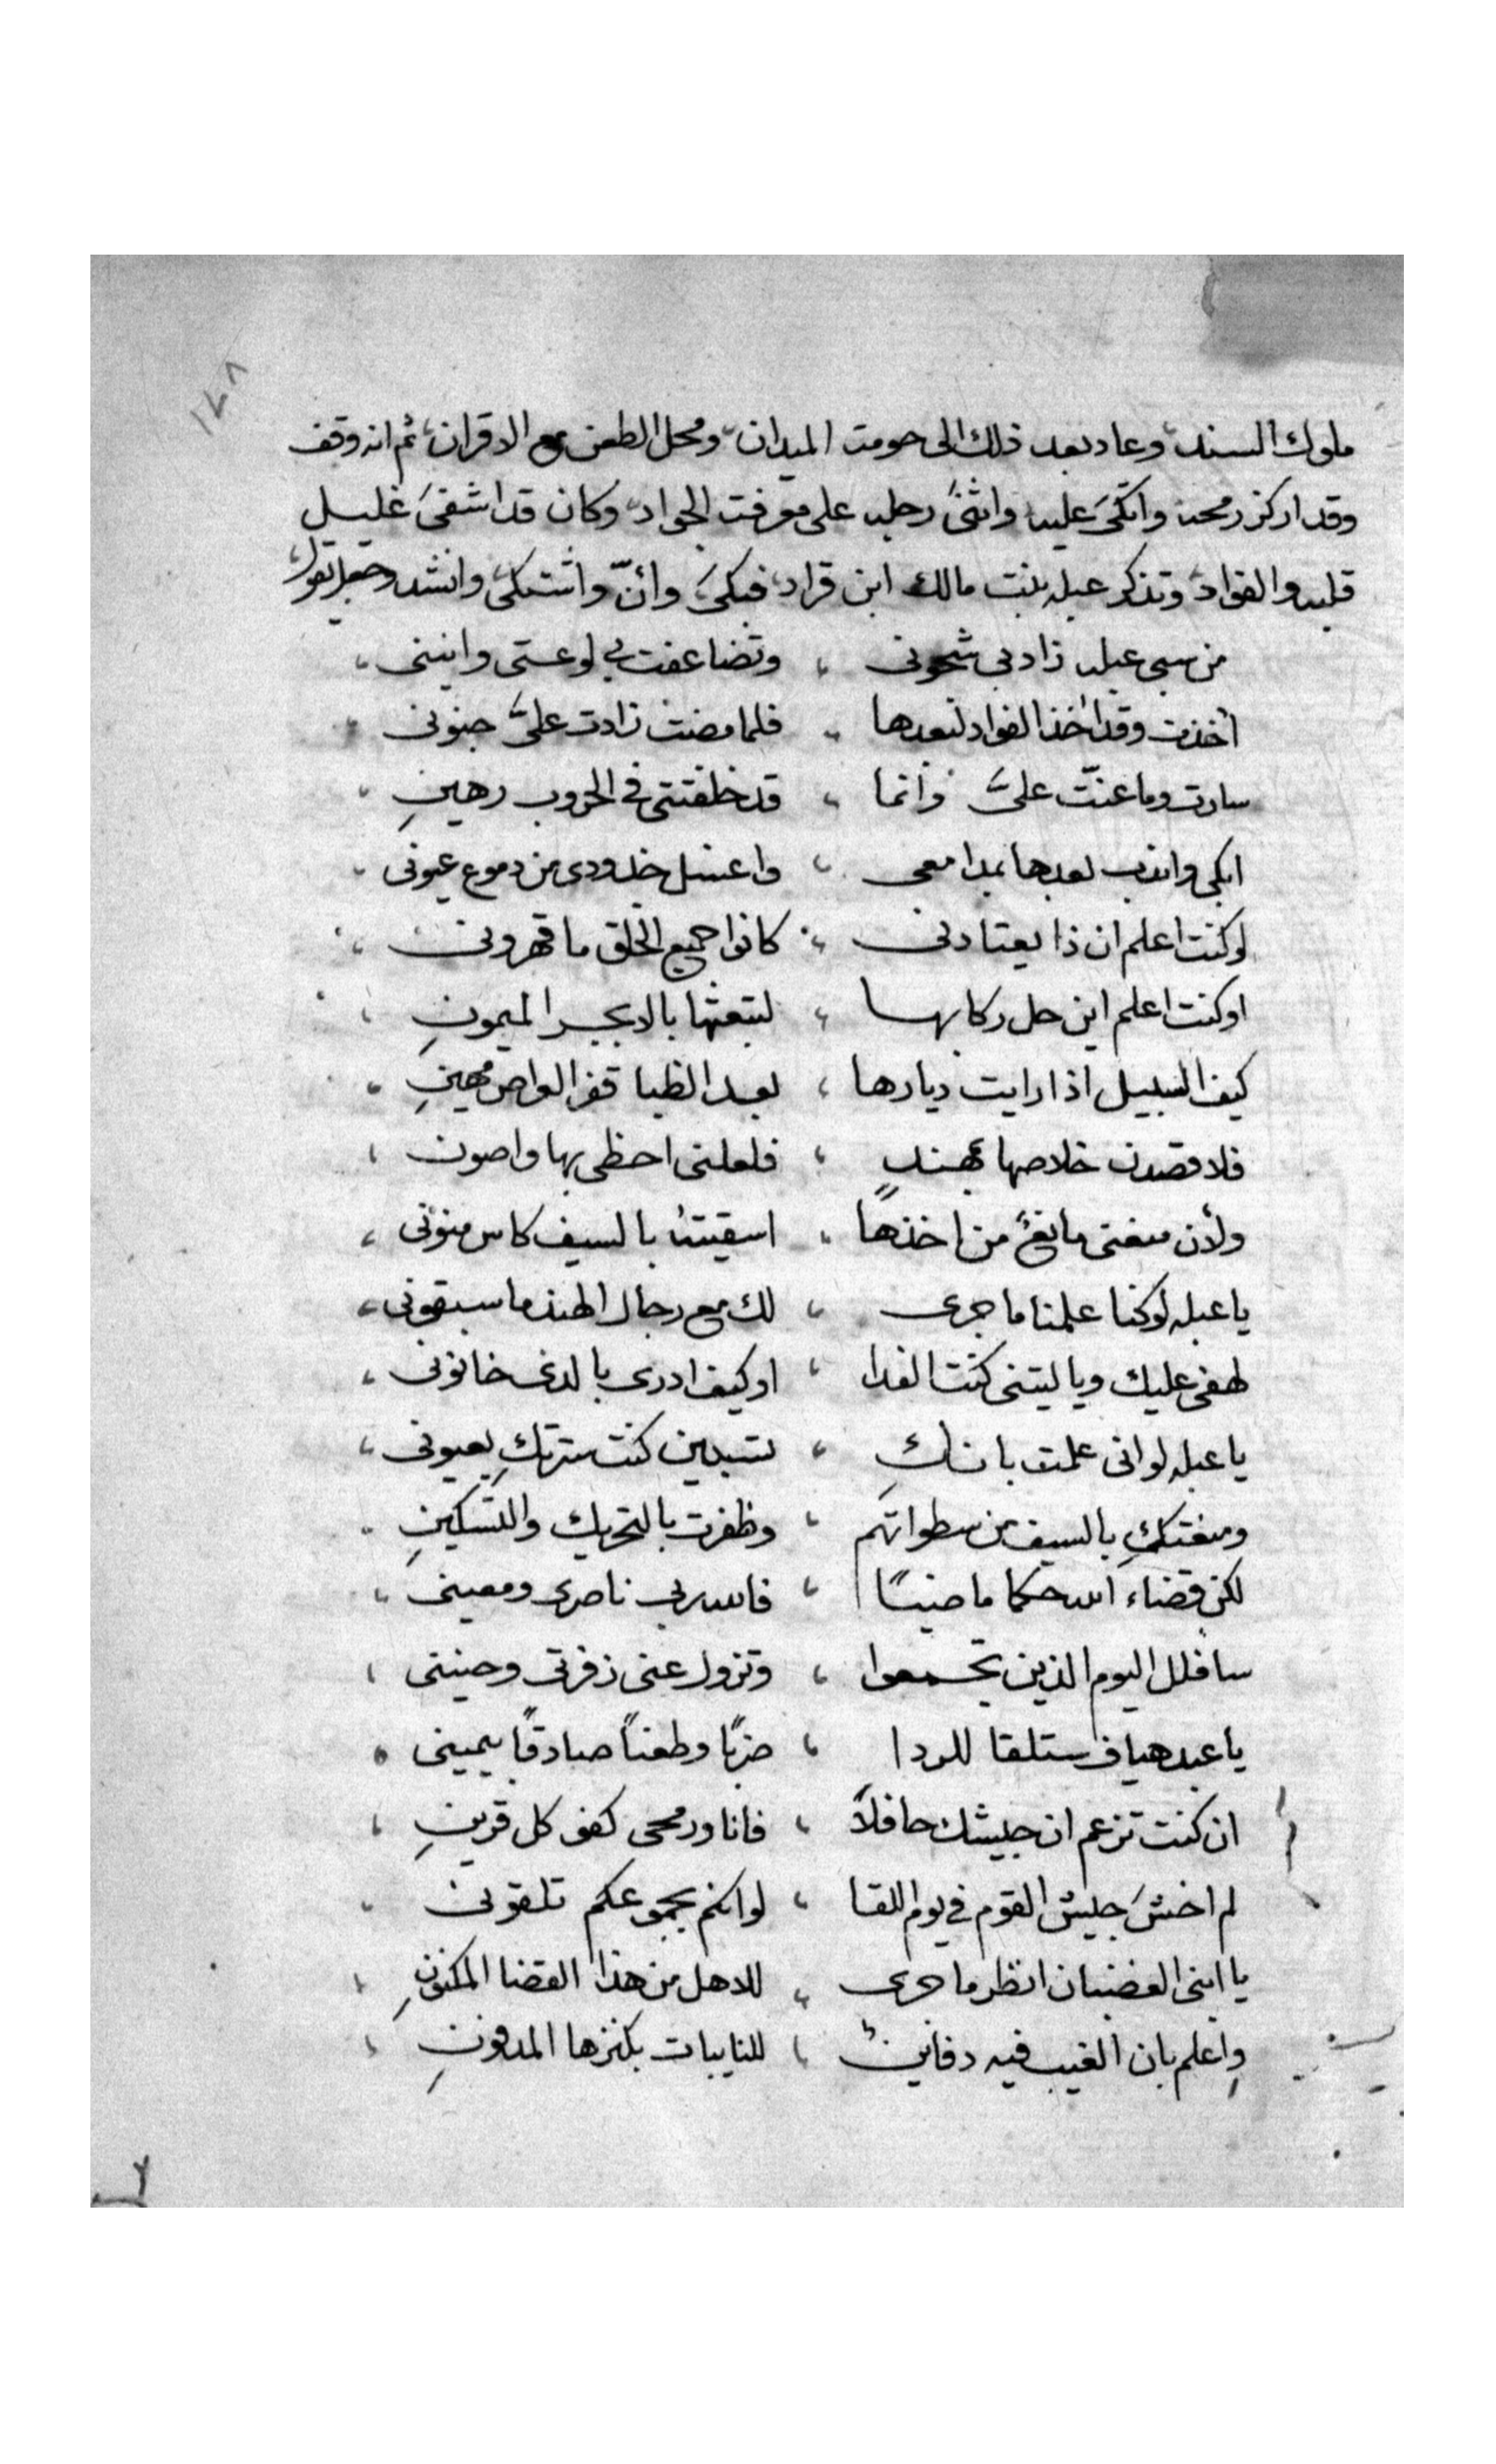 ١٢٨
ملوك السند، وعاد بعد ذلك الى حومت الميدان، ومحل الطعن مع الاقران، ثم انه وقف
وقد اركز رمحه واتكىَ عليه، واثنىَ رجليه على معرفت الجواد، وكان قد اشفىَ غليل
قلبه والفواد، وتذكر عبله بنت مالك ابن قراد، فبكىَ وأنّ واشتكى، وانشد وجعل يقول،
من سبى عبله زاد بى شجونى ، وتضاعفت بى لوعتى وانينى ،
أخذت وقد اخذ الفواد لبعدها ، فلما مضت زادت علىَّ جنونى
سارت وما عنّت علىَّ وانما ، قد خلفتنى فى الحروب رهينِ ،
ابكى واندب بعدها بمدامعى ، واغسل خدودى من دموع عيونى ،
لو كنت اعلم ان ذا يعتادنى ، كانوا جميع الخلق ما قهرونى ،
او كنت اعلم اين حل ركابها ، لتبعتها بالابجر الميمونِ ،
كيف السبيل اذا رايت ديارها ، بعد الظبا قفر مهينِ ،
فلاقصدن خلاصها بمهندٍ ، فلعلنى احظى بها واصون ،
ولأن منعنى مانعٌ من اخذها ، اسقيتهُ بالسيف كاس منونى ،
يا عبله لو كنا علمنا ما جرى ، لك مع رجال الهند ما سبقونى ،
لهفى عليك ويا ليتنى كنت الفدا ، او كيف ادرى بالذى خانونى ،
يا عبله لو انى علمت بانكِ ، تسبين كنت سترتكِ بعيونى ،
ومنعتكِ بالسيف من سطواتهم ، وظفرت بالتحريك والتسكينِ ،
لكن قضاء الله حكما ماضيًا ، فالله ربى ناصرى ومعينى ،
سافلل اليوم الذين تجمعوا ، وتزول عنى زفرتى وحنينى ،
يا عبد هياف ستلقا للردا ، ضربًا وطعنًا صادقًا بيمينى ،
ان كنت تزعم ان جيشك حافلاً ، فانا ورمحى كفو كل قرينِ ،
لم اخشَ جيش القوم فى يوم اللقا ، لو انكم بجموعكم تلقونى ،
يا ابنى الغضبان انظر ما جرى ، للاهل من هذا القضا المكنونِ ،
واعلم بان الغيب فيه دفاينٌ ، للنايبات بكنزها المدفونِ ،